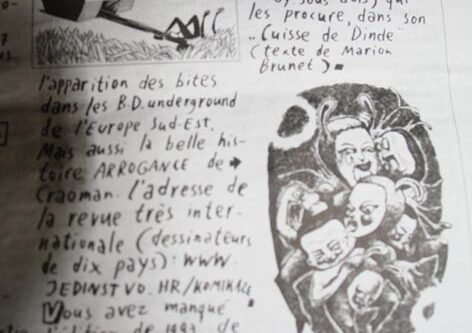 les procure, dans son
„Cuisse de Dinde"
(texte de Marion
Brunet).
l'apparition des bites
dans les B.D. underground
de l'Europe Sud-Est.
Mais aussi la belle his-
toire ARROGANCE de
Craoman. l'adresse de
la revue très inter-
nationale (dessinateurs
de dix pays): WWW.
JEDINSTVO.HR/KOMIKAZE
Vous avez manqué
l'édition de